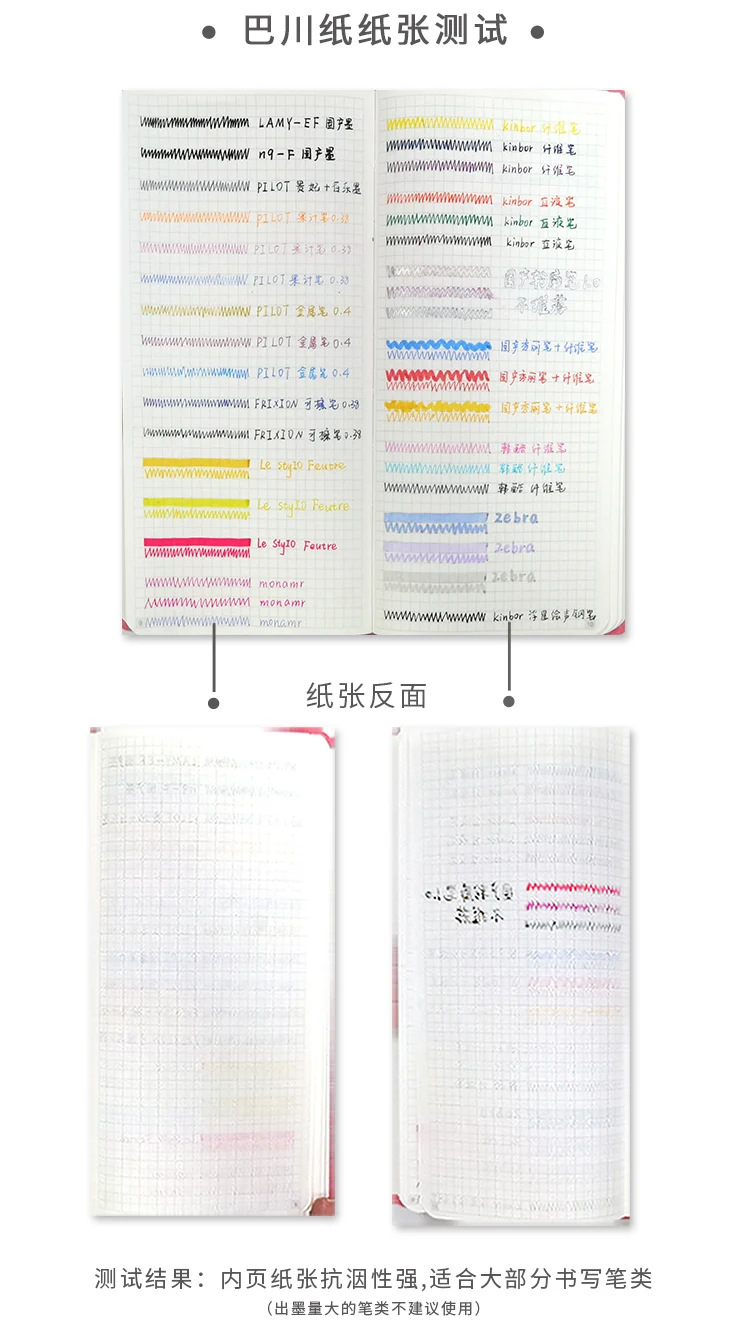 • 巴川纸纸张测试 •
LAMY-EF 国产墨
n9-F 国产墨
PILOT 贵妃+百乐墨
PILOT 果汁笔 0.38
PILOT 果汁笔 0.38
PILOT 果汁笔 0.38
PILOT 金属笔 0.4
PILOT 金属笔 0.4
PILOT 金属笔 0.4
FRIXION 可擦笔 0.38
FRIXION 可擦笔 0.38
Le StylO Feutre
Le StylO Feutre
Le StylO Feutre
monamr
monamr
monamr
kinbor 纤维笔
kinbor 纤维笔
kinbor 纤维笔
kinbor 直液笔
kinbor 直液笔
kinbor 直液笔
国产 笔 1.0
不推荐
国产秀丽笔+纤维笔
国产秀丽笔+纤维笔
国产秀丽笔+纤维笔
韩酷 纤维笔
韩酷 纤维笔
韩酷 纤维笔
zebra
zebra
zebra
kinbor 浮里绘声钢笔
纸张反面
测试结果：内页纸张抗洇性强,适合大部分书写笔类
（出墨量大的笔类不建议使用）